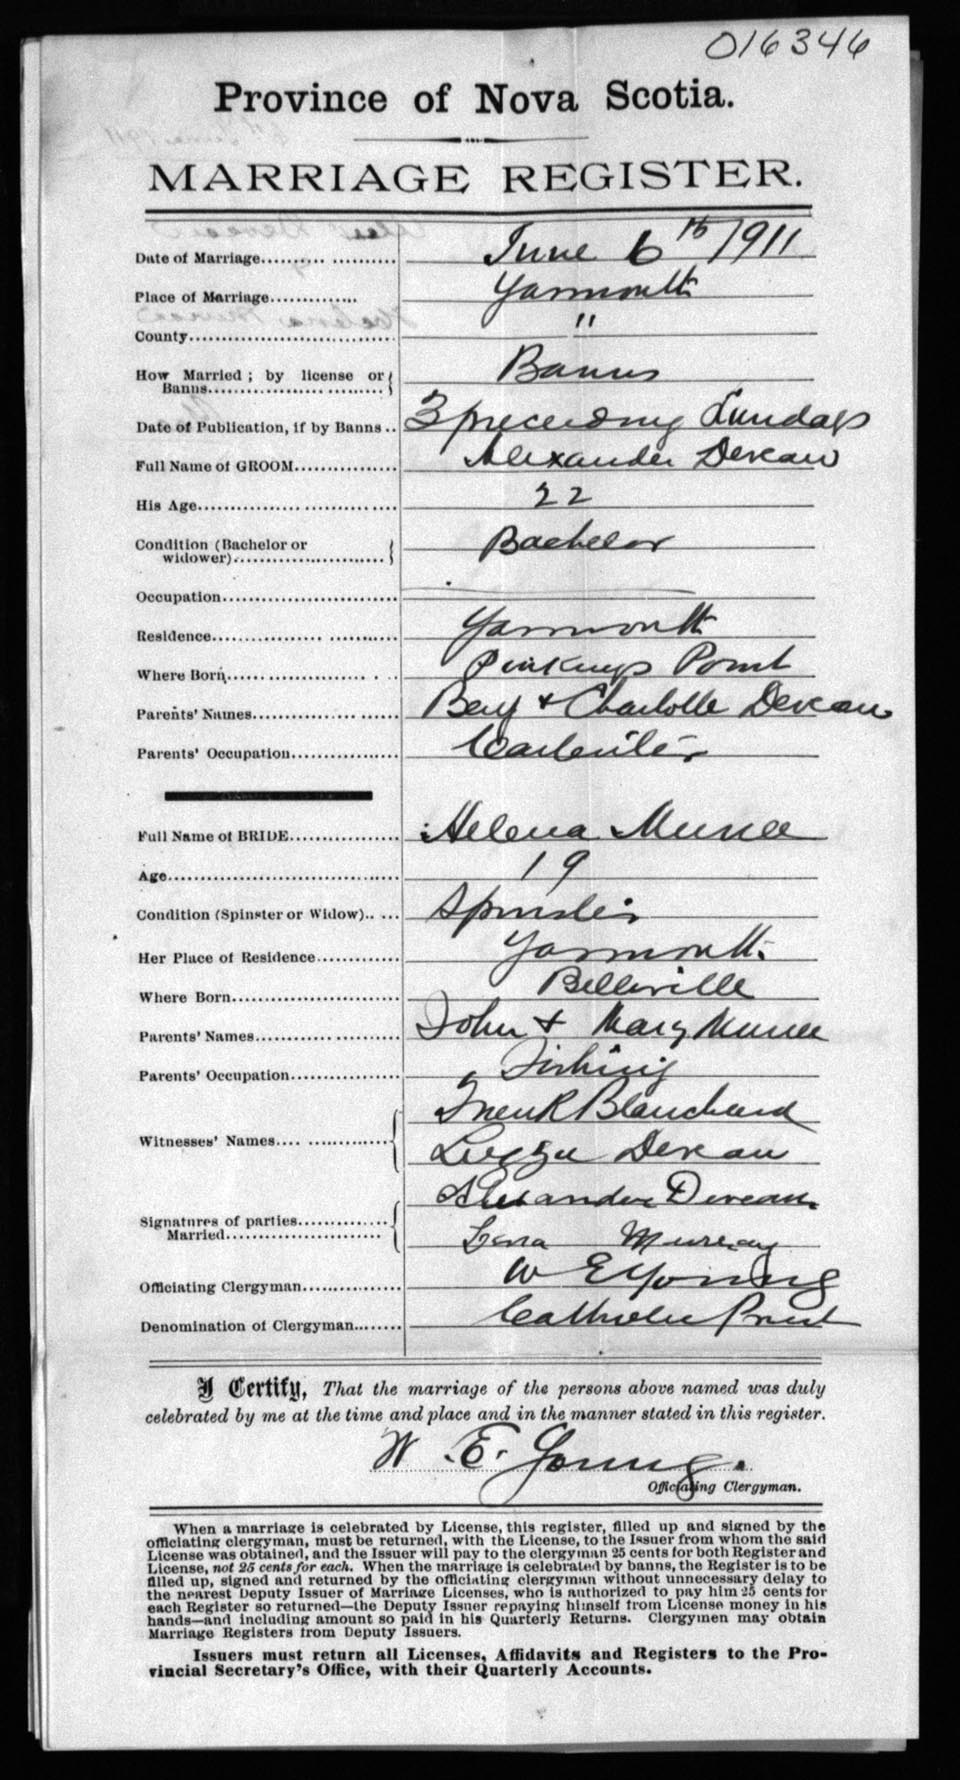 016346
Province of Nova Scotia.
MARRIAGE REGISTER.
Date of Marriage.......... .......... June 6th /911
Place of Marriage............. Yarmouth
County................................. "
How Married ; by license or Banns................................. Banns
Date of Publication, if by Banns .. 3 preceding Sundays
Full Name of GROOM................ Alexander Deveau
His Age................................. 22
Condition (Bachelor or widower)........................ Bachelor
Occupation................................
Residence................ .......... Yarmouth
Where Born........................ Pinkneys Point
Parents' Names................ ......... Benj + Charlotte Deveau
Parents' Occupation................ Carpenter
Full Name of BRIDE................ Helena Muise
Age..................................... 19
Condition (Spinster or Widow).. .... Spinster
Her Place of Residence............ Yarmouth
Where Born......................... Belleville
Parents' Names...................... John + Mary Muise
Parents' Occupation................ Fishing
Witnesses' Names.... ............... Frank Blanchard
Deveau
Signatures of parties Married........................ Alexander Deveau
Lena Murray
Officiating Clergyman................ W E Young
Denomination of Clergyman........ Catholic Priest
I Certify, That the marriage of the persons above named was duly
celebrated by me at the time and place and in the manner stated in this register.
W. E. Young.
Officiating Clergyman.
When a marriage is celebrated by License, this register, filled up and signed by the
officiating clergyman, must be returned, with the License, to the Issuer from whom the said
License was obtained, and the Issuer will pay to the clergyman 25 cents for both Register and
License, not 25 cents for each. When the marriage is celebrated by banns, the Register is to be
filled up, signed and returned by the officiating clergyman without unnecessary delay to
the nearest Deputy Issuer of Marriage Licenses, who is authorized to pay him 25 cents for
each Register so returned—the Deputy Issuer repaying himself from License money in his
hands—and including amount so paid in his Quarterly Returns. Clergymen may obtain
Marriage Registers from Deputy Issuers.
Issuers must return all Licenses, Affidavits and Registers to the Pro-
vincial Secretary's Office, with their Quarterly Accounts.